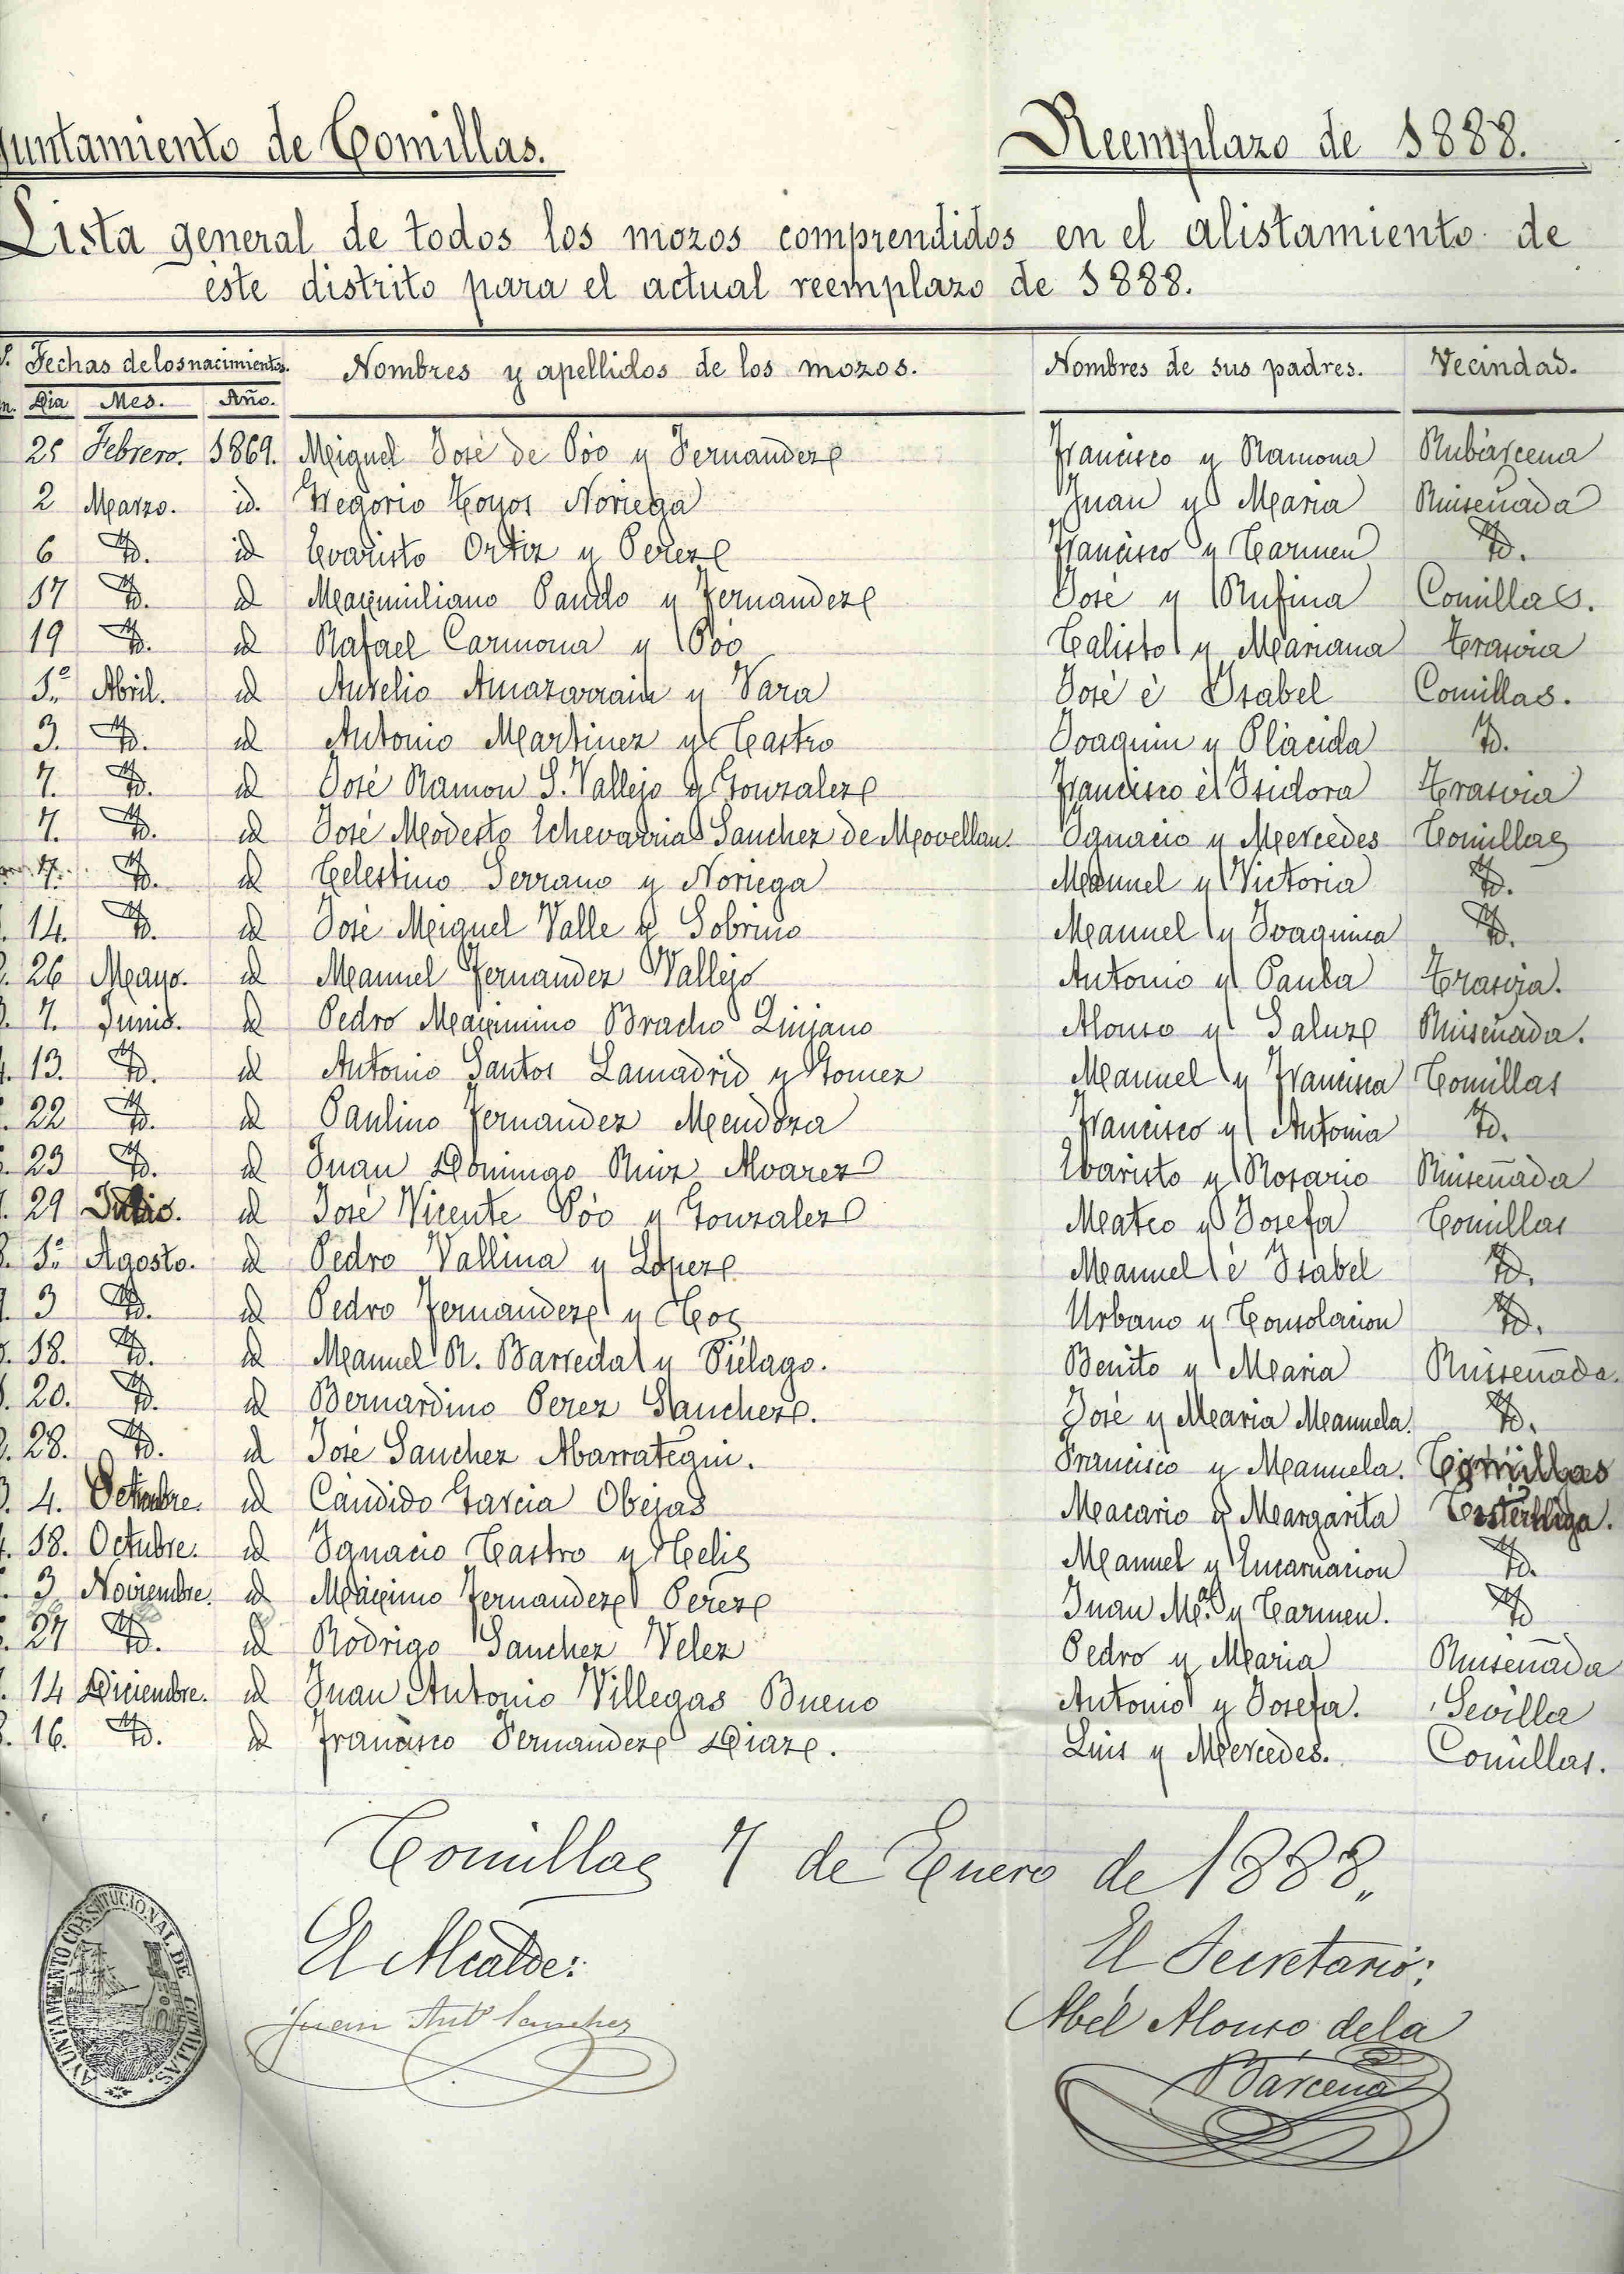 yuntamiento de Comillas. Reemplazo de 1888.
Lista general de todos los mozos comprendidos en el alistamiento de
éste distrito para el actual reemplazo de 1888.
Fechas de los nacimientos. Nombres y apellidos de los mozos. Nombres de sus padres. Vecindad.
Dia Mes. Año.
25 Febrero. 1869. Miguel José de Póo y Fernandez Francisco y Ramona Rubárcena
2 Marzo. id. Gregorio Hoyos Noriega Juan y Maria Ruiseñada
6 Yd. id Evaristo Ortiz y Perez Francisco y Carmen Yd.
17 Yd. id Maximiliano Pando y Fernandez José y Rufina Comillas.
19 Yd. id Rafael Carmona y Póo Calisto y Mariana Trasvia
1.º Abril. id Aurelio Amazarrain y Vara José é Isabel Comillas.
3. Yd. id Antonio Martinez y Castro Joaquin y Plácida Yd.
7. Yd. id José Ramon S. Vallejo y Gonzalez Francisco é Isidora Trasvia
7. Yd. id José Modesto Echevarria Sanchez de Movellan. Ignacio y Mercedes Comillas
7. Yd. id Celestino Serrano y Noriega Manuel y Victoria Yd.
14. Yd. id José Miguel Valle y Sobrino Manuel y Joaquina Yd.
26 Mayo. id Manuel Fernandez Vallejo Antonio y Paula Trasvia.
7. Junio. id Pedro Maximino Bracho Quijano Alonso y Saluz Ruiseñada.
13. Yd. id Antonio Santos Lamadrid y Gomez Manuel y Francisca Comillas
22 Yd. id Paulino Fernandez Mendoza Francisco y Antonia Yd.
23 Yd. id Juan Domingo Ruiz Alvarez Evaristo y Rosario Ruiseñada
29 Julio. id José Vicente Póo y Gonzalez Mateo y Josefa Comillas
1.º Agosto. id Pedro Vallina y Lopez Manuel é Isabel Yd.
3 Yd. id Pedro Fernandez y Cos Urbano y Consolacion Yd.
18. Yd. id Manuel R. Barreda y Piélago. Benito y Maria Ruiseñada.
20. Yd. id Bernardino Perez Sanchez. José y Maria Manuela. Yd.
28. Yd. id José Sanchez Abarrategui. Francisco y Manuela. Comillas
4. Octubre. id Cándido Garcia Obejas Macario y Margarita
18. Octubre. id Ignacio Castro y Celis Manuel y Encarnacion Yd.
3 Noviembre. id Máximo Fernandez Perez Juan M.ª y Carmen. Yd
27 Yd. id Rodrigo Sanchez Velez Pedro y Maria Ruiseñada
14 Diciembre. id Juan Antonio Villegas Bueno Antonio y Josefa. Sevilla
16. Yd. id Francisco Fernandez Diaz. Luis y Mercedes. Comillas.
Comillas 7 de Enero de 1888,,
El Alcalde: El Secretario:
Juan Antº Sanchez Abél Alonso de la
Bárcena
AYUNTAMIENTO CONSTITUCIONAL DE COMILLAS.